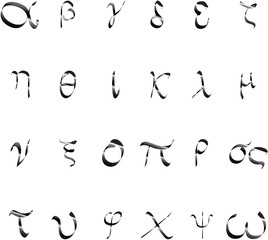 α β γ δ ε ζ
η θ ι κ λ μ
ν ξ ο π ρ σς
τ υ φ χ ψ ω